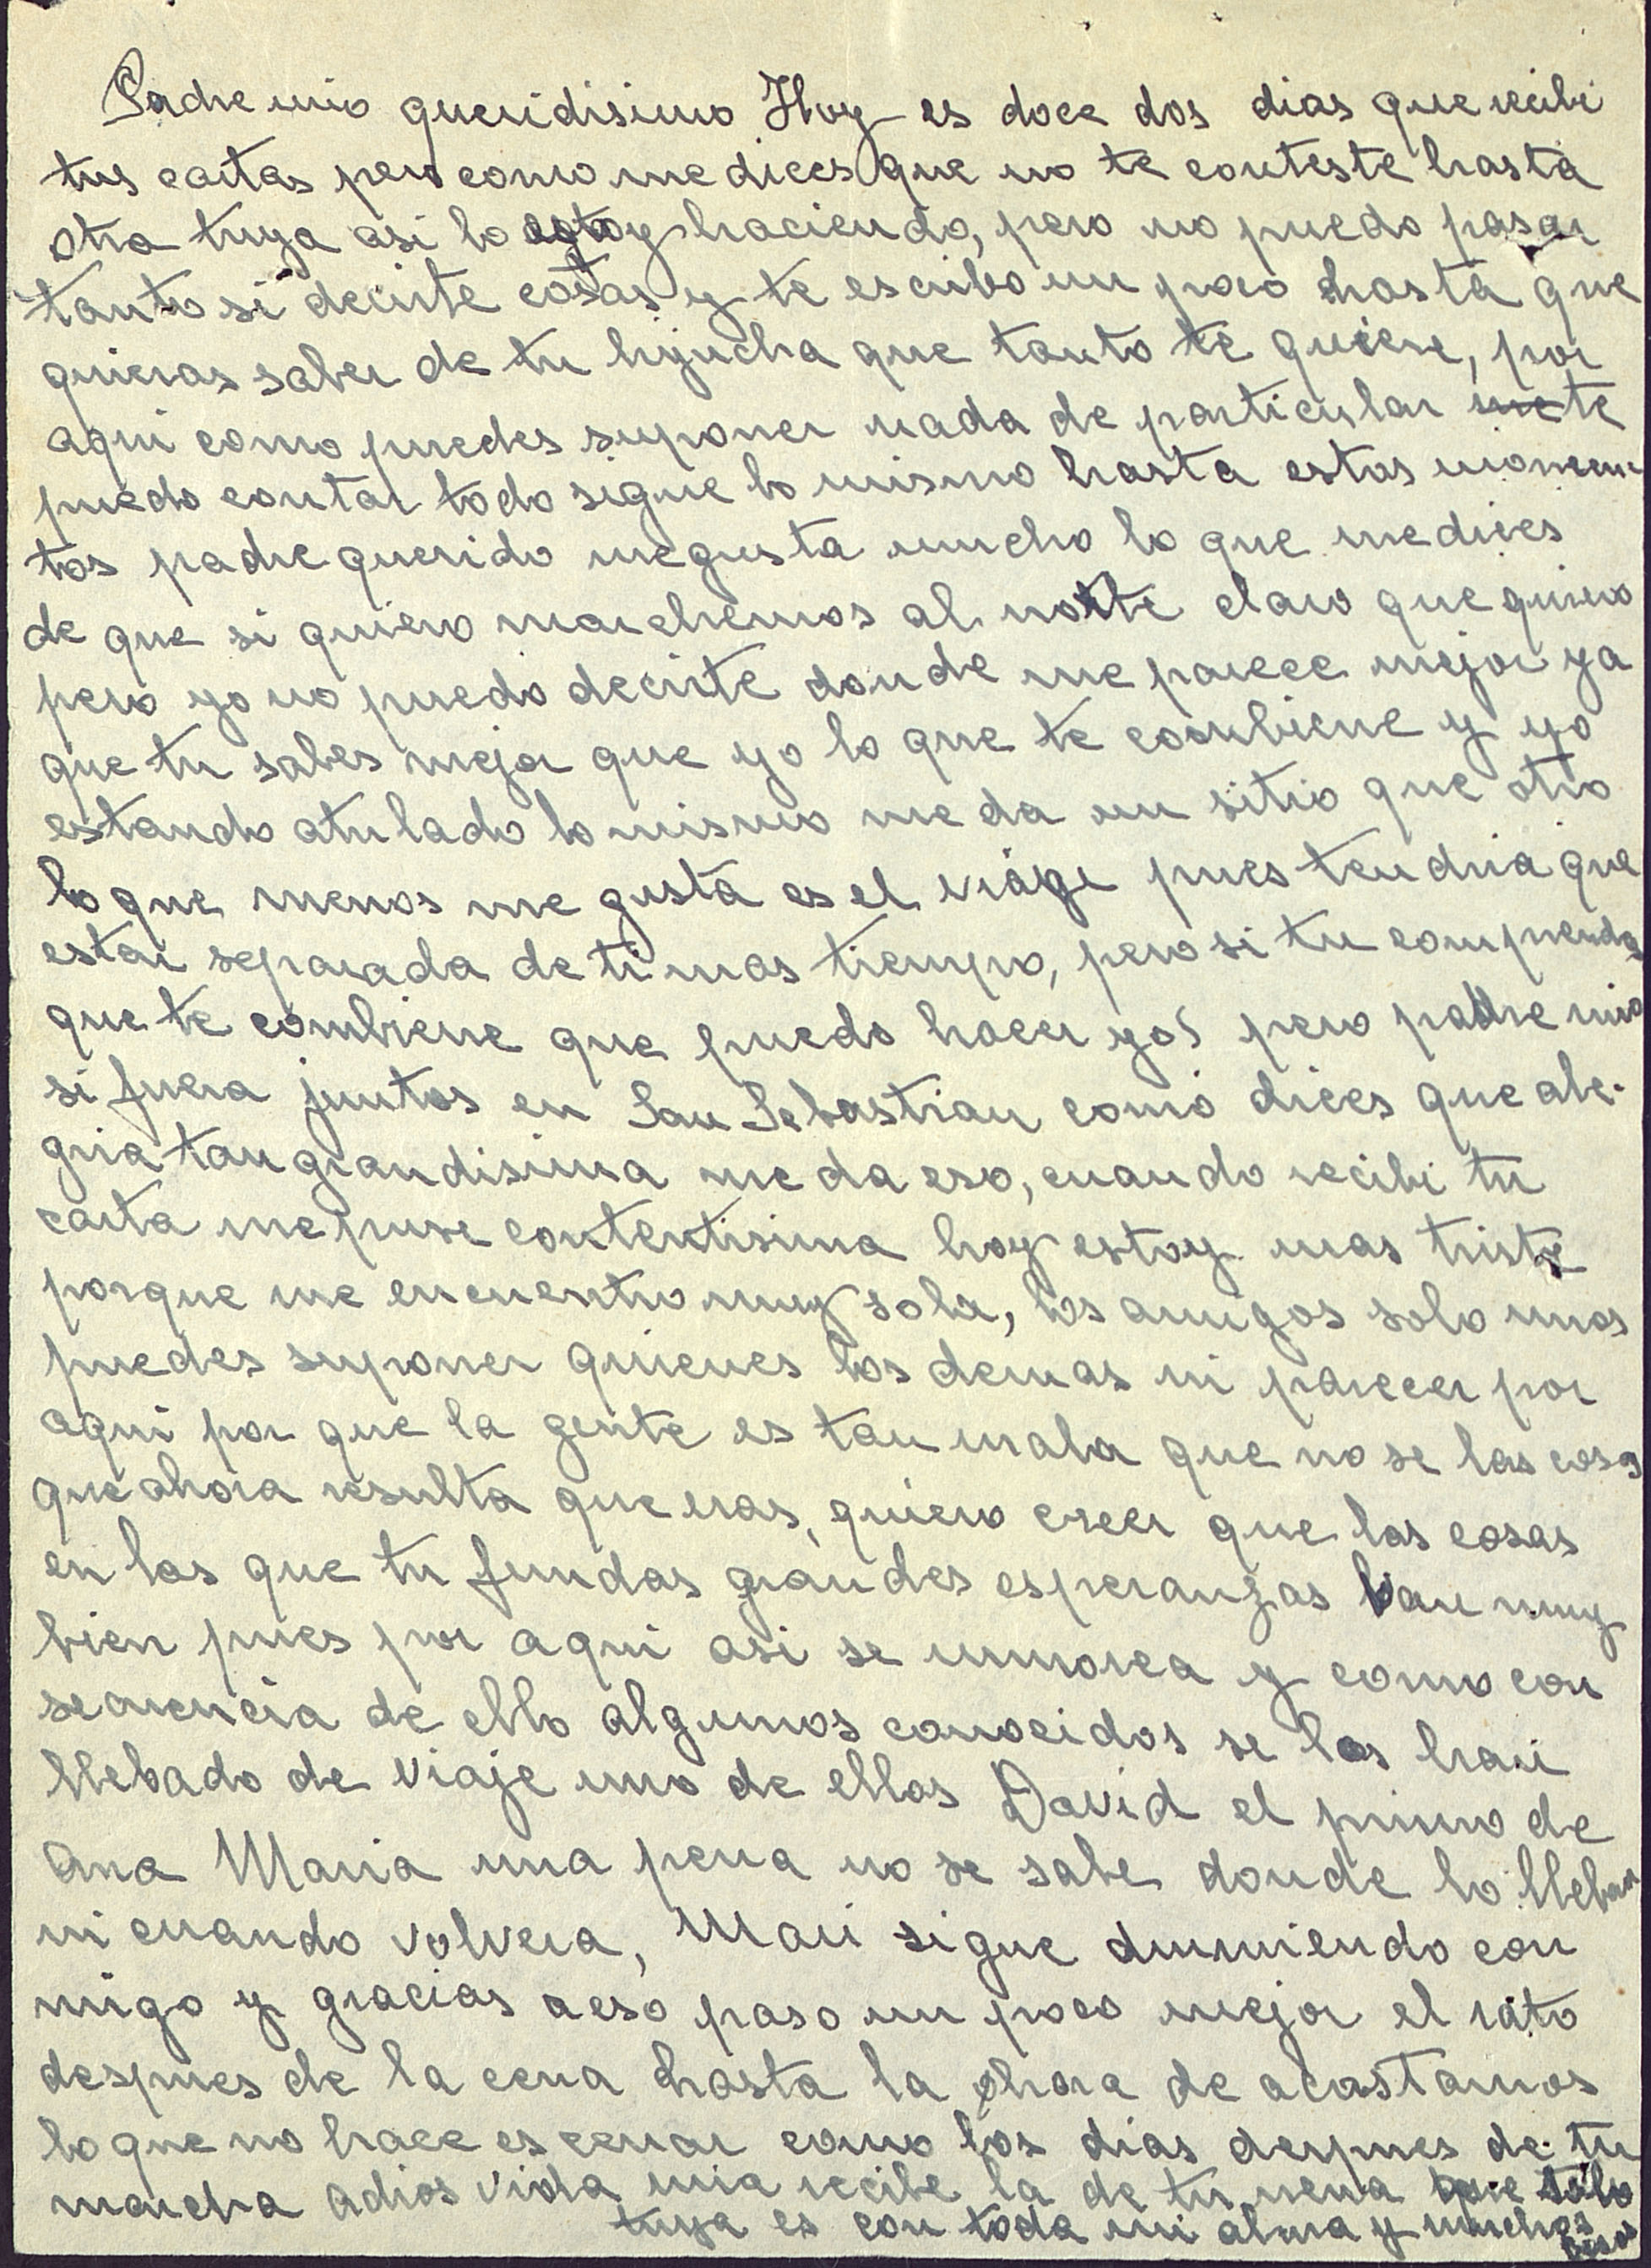 Padre mio queridisimo Hoy es doce dos dias que recibi
tus cartas pero como me dices que no te conteste hasta
otra tuya asi lo estoy haciendo, pero no puedo pasar
tanto si decirte cosas y te escribo un poco hasta que
quieras saber de tu hijucha que tanto te quiere, por
aqui como puedes suponer nada de particular te
puedo contar todo sigue lo mismo hasta estos momen-
tos padre querido me gusta mucho lo que me dices
de que si quiero marchemos al norte claro que quiero
pero yo no puedo decirte donde me parece mejor ya
que tu sabes mejor que yo lo que te combiene y yo
estando a tu lado lo mismo me da un sitio que otro
lo que menos me gusta es el viage pues tendria que
estar separada de ti mas tiempo, pero si tu comprendes
que te combiene que puedo hacer yo? pero padre mio
si fuera juntos en San Sebastian como dices que ale-
gria tan grandisima me da eso, cuando recibi tu
carta me puse contentisima hoy estoy mas triste
porque me encuentro muy sola, los amigos solo unos
puedes suponer quienes los demas ni parecer por
aqui por que la gente es tan mala que no se las cosas
que ahora resulta que eras, quiero creer que las cosas
en las que tu fundas grandes esperanzas van muy
bien pues por aqui asi se rumorea y como con
secuencia de ello algunos conocidos se los han
llebado de viaje uno de ellos David el primo de
Ana Maria una pena no se sabe donde lo lleban
ni cuando volvera, Mari sigue durmiendo con
migo y gracias a eso paso un poco mejor el rato
despues de la cena hasta la hora de acostarnos
lo que no hace es cenar como los dias despues de tu
marcha adios vida mia recibe la de tu nena que solo
tuya es con toda mi alma y muchos besos